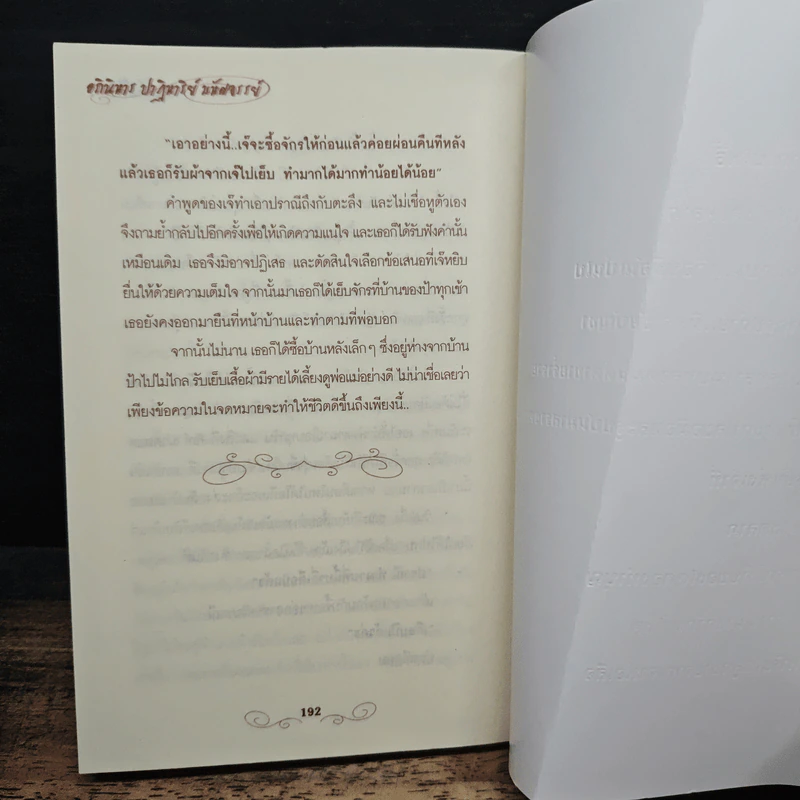 อภินิหาร ปาฏิหาริย์ มหัศจรรย์
"เอาอย่างนี้..เจ๊จะซื้อจักรให้ก่อนแล้วค่อยผ่อนคืนทีหลัง
แล้วเธอก็รับผ้าจากเจ๊ไปเย็บ ทำมากได้มากทำน้อยได้น้อย"
คำพูดของเจ๊ทำเอาปราณีถึงกับตะลึง และไม่เชื่อหูตัวเอง
จึงถามย้ำกลับไปอีกครั้งเพื่อให้เกิดความแน่ใจ และเธอก็ได้รับฟังคำนั้น
เหมือนเดิม เธอจึงมิอาจปฏิเสธ และตัดสินใจเลือกข้อเสนอที่เจ๊หยิบ
ยื่นให้ด้วยความเต็มใจ จากนั้นมาเธอก็ได้เย็บจักรที่บ้านของป้าทุกเช้า
เธอยังคงออกมายืนที่หน้าบ้านและทำตามที่พ่อบอก
จากนั้นไม่นาน เธอก็ได้ซื้อบ้านหลังเล็กๆ ซึ่งอยู่ห่างจากบ้าน
ป้าไปไม่ไกล รับเย็บเสื้อผ้ามีรายได้เลี้ยงดูพ่อแม่อย่างดี ไม่น่าเชื่อเลยว่า
เพียงข้อความในจดหมายจะทำให้ชีวิตดีขึ้นถึงเพียงนี้..
192